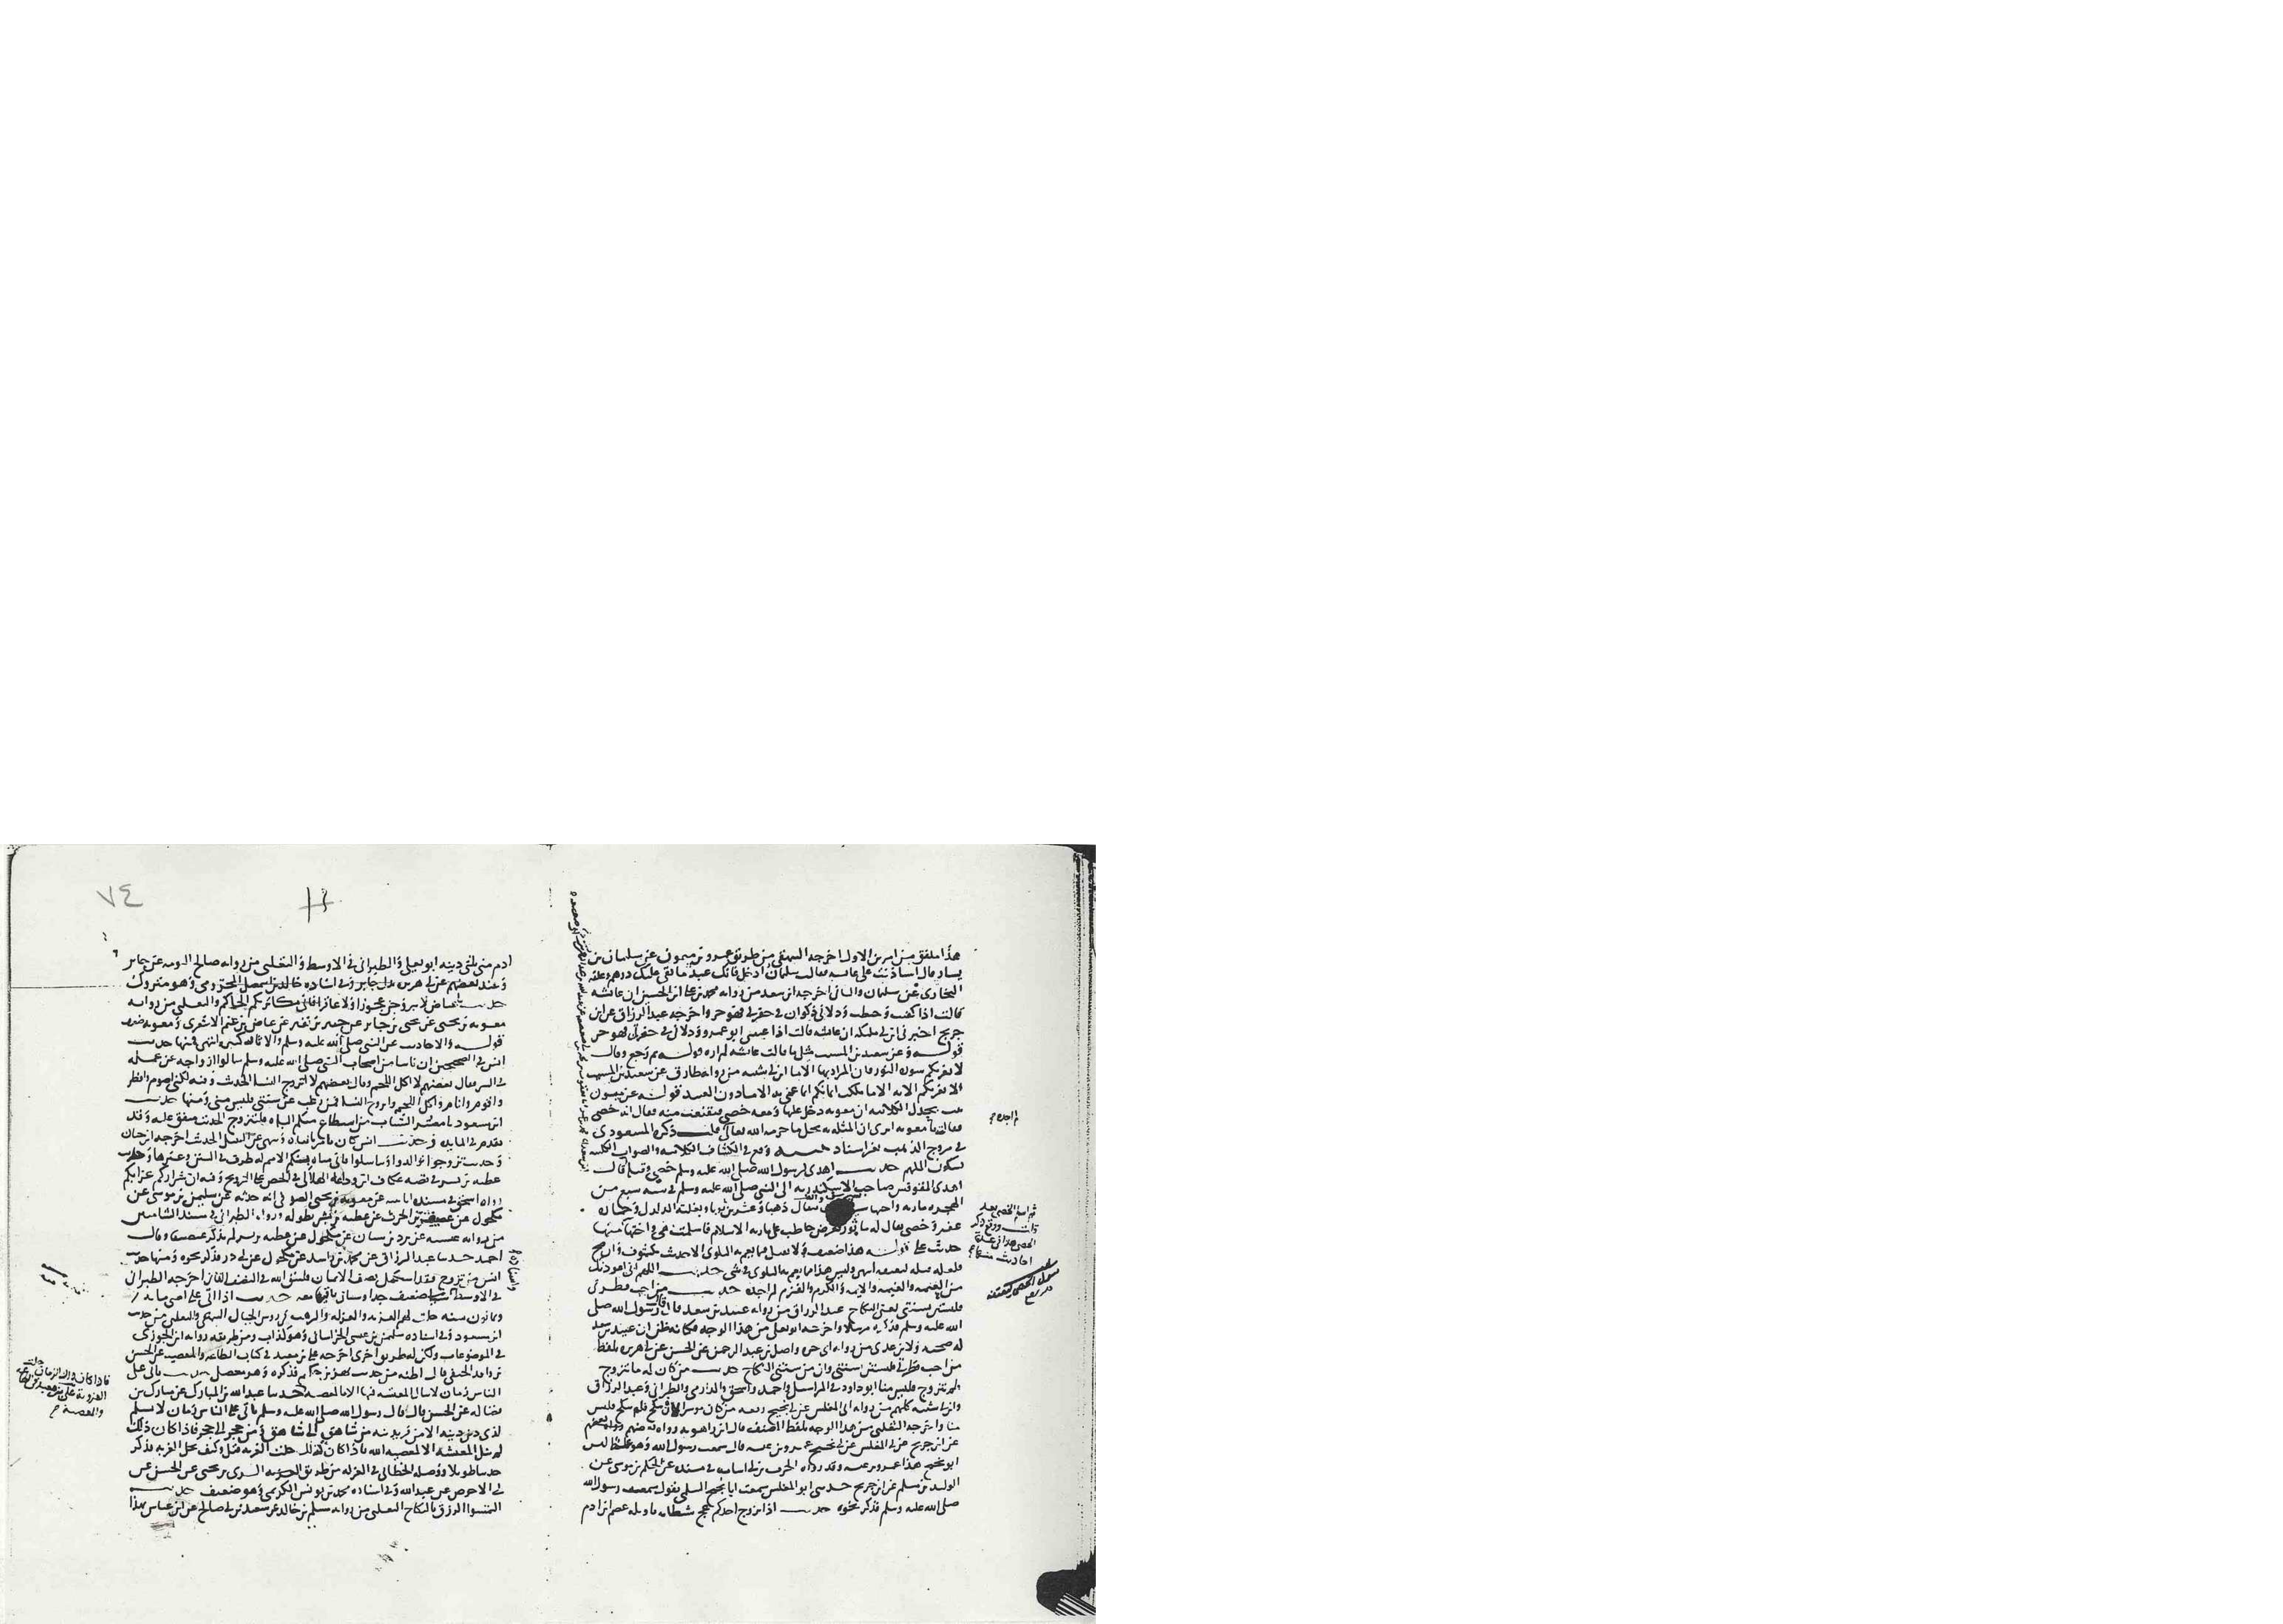 هذا ملفق من امرين الاول اخرجه البيهقي من طريق عمرو بن ميمون عن سليمان بن
يسار قال استاذنت على عايشه فقالت سليمان ادخل فانك عبد ما بقي عليك درهم وعلقه
البخاري عن سليمان والثاني اخرجه ابن سعد من روايه محمد بن علي ابن الحسين ان عائشه
قالت اذا كفنت وحنطت ودلاني ذكوان في حفرتي فهو حر واخرجه عبد الرزاق عن ابن
جريج اخبرني ابن ابي مليكه ان عائشه قالت اذا غيبني ابو عمرو ودلاني في حفرتي فهو حر
قوله وعن سعيد بن المسيب مثل ما قالت عائشه لم اره قوله ثم رجع وقال
لا تغرنكم سوره النور فان المراد بها الاما ابن ابي شيبه من روايه طارق عن سعيد بن المسيب
لا تغرنكم الايه الا ما ملكت ايمانكم انما عني به الاما دون العبيد قوله عن ميسون
بنت بحدل الكلابيه ان معويه دخل عليها ومعه خصي فتقنعت منه فقال انه خصي
فقالت يا معويه اترى ان المثله به تحل ما حرم الله تعالى قلت ذكره المسعودي
في مروج الذهب بغير اسناد تنبيه وقع في الكشاف الكلابيه والصواب الكلبيه
بسكون اللام حديث اهدي لرسول الله صلى الله عليه وسلم خصي وقبله قال
اهدى المقوقس صاحب الاسكندريه الى النبي صلى الله عليه وسلم في سنه سبع من
الهجره ماريه واختها سيرين والف مثقال ذهبا وعشرين ثوبا وبغلته الدلدل وحماره
عفير وخصي يقال له مابور فعرض حاطب على ماريه الاسلام فاسلمت هي واختها
حديث على قوله هذا ضعيف ولا يقبل فيما يعم به البلوى الا حديث مكشوف وان صح
فلعله قبله ليعتقه وليس هذا مما يعم به البلوى في شي حديث اللهم اني اعوذ بك
من العيمه والغيمه والايمه والكزم والقزم لم اجده حديث من احب فطرتي
فليستن بسنتي يعني النكاح عبد الرزاق من روايه عبيد بن سعد قال قال رسول الله صلى
الله عليه وسلم فذكره مرسلا واخرجه ابو يعلى من هذا الوجه فكانه ظن ان عبيد بن سعد
له صحبه ولابن عدي من روايه ابي حره واصل بن عبد الرحمن عن الحسن عن ابي هريره بلفظ
من احب فطرتي فليستن بسنتي وان من سنتي النكاح حديث من كان له ما يتزوج
ولم يتزوج فليس منا ابو داود في المراسيل واحمد واسحق والدارمي والطبراني وعبد الرزاق
وابن ابي شيبه كلهم من روايه ابي المغلس عن ابي نجيح رفعه من كان موسرا لان ينكح فلم ينكح فليس
منا واخرجه الثعلبي من هذا الوجه بلفظ المصنف قال ابن راهويه ورواه بعضهم
عن ابن جريج عن ابي المغلس عن ابي نجيح عمرو بن عبسه قال سمعت رسول الله وهو غلط ليس
ابو نجيح هذا عمرو بن عبسه وقد رواه الحرث بن ابي اسامه في مسنده عن الحكم بن موسى عن
الوليد بن مسلم عن ابن جريج حدثني ابو المغلس سمعت ابا نجيح السلمي يقول سمعت رسول الله
صلى الله عليه وسلم فذكر نحوه حديث اذا تزوج احدكم عج شيطانه يا ويله عصم ابن ادم
لم اجده
ثم اسلم الخصي بعد
ذلك ووقع ذكر
الخصي هذا في عدة
احاديث
٧٤
ادم مني ثلثي دينه ابو يعلى والطبراني في الاوسط والثعلبي من روايه صالح مولى التومه عن جابر
وعند بعضهم عن ابي هريره بدل جابر وفي اسناده خالد بن اسمعيل المخزومي وهو متروك
حديث يا عياض لا تزوجن عجوزا ولا عاقرا فاني مكاثر بكم الحاكم والثعلبي من روايه
معويه بن يحيى عن يحيى بن جابر عن جبير بن نفير عن عياض بن غنم الاشعري ومعويه ضعيف
قوله والاحاديث عن النبي صلى الله عليه وسلم والاثار كثيره انتهى فمنها حديث
انس في الصحيحين ان ناسا من اصحاب النبي صلى الله عليه وسلم سالوا ازواجه عن عمله
في السر فقال بعضهم لا اكل اللحم وقال بعضهم لا اتزوج النسا الحديث وفيه لكني اصوم وافطر
واقوم وانام واكل اللحم واتزوج النسا فمن رغب عن سنتي فليس مني ومنها حديث
ابن مسعود يا معشر الشباب من استطاع منكم الباه فليتزوج الحديث متفق عليه وقد
تقدم في المايده وحديث انس كان يامر بالباه وينهى عن التبتل الحديث اخرجه ابن حبان
وحديث تزوجوا الودود وتناسلوا فاني مباه بكم الامم له طرق في السنن وغيرها وحديث
عطيه بن بسر في قصه عكاف ابن وداعه الهلالي في الحض على التزويج وفيه ان شراركم عزابكم
رواه اسحق في مسنده عن معويه بن يحيى الصوفي انه حدثه عن سليمن بن موسى عن
مكحول عن غضيف بن الحرث عن عطيه بن بسر بطوله ورواه الطبراني في مسند الشاميين
من روايه عن برد بن سنان عن مكحول عن عطيه بن بسر لم يذكر غضيفا وقال
احمد حدثنا عبد الرزاق عن محمد بن راشد عن مكحول عن ابي ذر فذكر نحوه ومنها حديث
انس من تزوج فقد استكمل نصف الايمان فليتق الله في النصف الثاني اخرجه الطبراني
في الاوسط ضعيف جدا حديث اذا اتى على امتي مايه
وثمانون سنه حلت لهم العزبه والعزله والترهب في روس الجبال البيهقي والثعلبي من حديث
ابن مسعود وفي اسناده سليمن بن عيسى الخراساني وهو كذاب ومن طريقه رواه ابن الجوزي
في الموضوعات ولكن له طريق اخرى اخرجه علي بن معبد في كتاب الطاعه والمعصيه عن الحسن
بن واقد الحنفي قال اظنه من حديث بهز بن حكيم فذكره وهو معضل حديث ياتي على
الناس زمان لا تنال المعيشه فيها الا بالمعصيه حدثنا عبد الله بن المبارك عن مبارك بن
فضاله عن الحسن قال قال رسول الله صلى الله عليه وسلم ياتي على الناس زمان لا يسلم
لذي دين دينه الا من فر بدينه من شاهق الى شاهق ومن جحر الى جحر فاذا كان ذلك
لم تنل المعيشه الا بمعصيه الله فاذا كان كذلك حلت العزبه قيل وكيف تحل العزبه فذكر
حديثا طويلا ووصله الخطابي في العزله من طريق السري بن يحيى عن الحسن عن
ابي الاحوص عن عبد الله وفي اسناده محمد بن يونس الكديمي وهو ضعيف حديث
التمسوا الرزق بالنكاح الثعلبي من روايه مسلم بن خالد عن سعيد بن ابي صالح عن ابن عباس بهذا